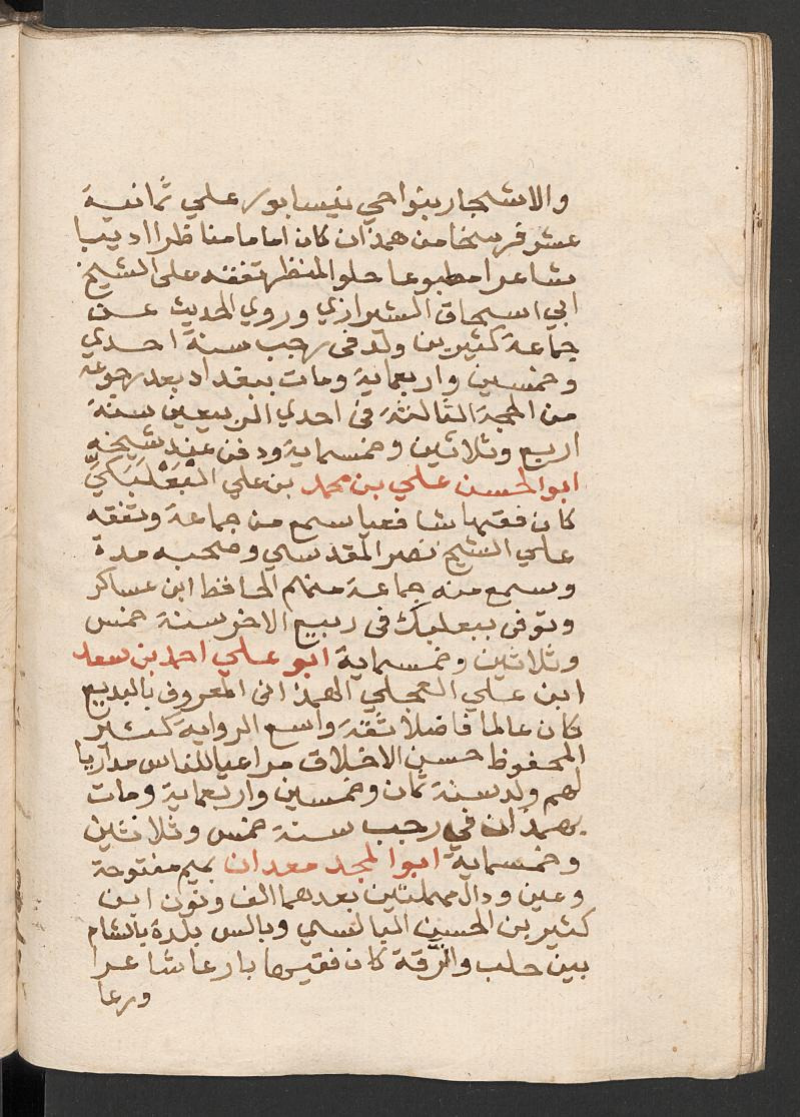 والاشجار بنواحي نيسابور علي ثمانية
عشر فرسخا من همذان كان اماما مناظرا اديبا
شاعرا مطبوعا حلو المنظر تفقه على الشيخ
ابي اسحاق الشيرازي وروي الحديث عن
جماعة كثيرين ولد في رجب سنة احدي
وخمسين واربعماية ومات ببغداد بعد رجوعه
من الحجة الثالثة في احدي الربيعين سنة
اربع وثلاثين وخمسماية ودفن عند شيخه
ابو الحسن علي بن محمد بن علي البَعْلَبَكيّ
كان فقيها شافعيا سمع من جماعة وتفقه
علي الشيخ نصر المقدسي وصحبه مدة
وسمع منه جماعة منهم الحافظ ابن عساكر
وتوفى ببعلبك في ربيع الاخر سنة خمس
وثلاثين وخمسماية ابو علي احمد بن سعد
ابن علي العجلي الهمذاني المعروف بالبديع
كان عالما فاضلا ثقة واسع الرواية كثير
المحفوظ حسن الاخلاق مراعيا للناس مداريا
لهم ولد سنة ثمان وخمسين واربعماية ومات
بهمذان في رجب سنة خمس وثلاثين
وخمسماية ابوا لمجد معدان بميم مفتوحة
وعين ودال مهملتين بعدهما الف ونون ابن
كثير بن الحسين البالسي وبالس بلدة بالشام
بين حلب والرّقة كان فقيها بارعا شاعرا
ورعا